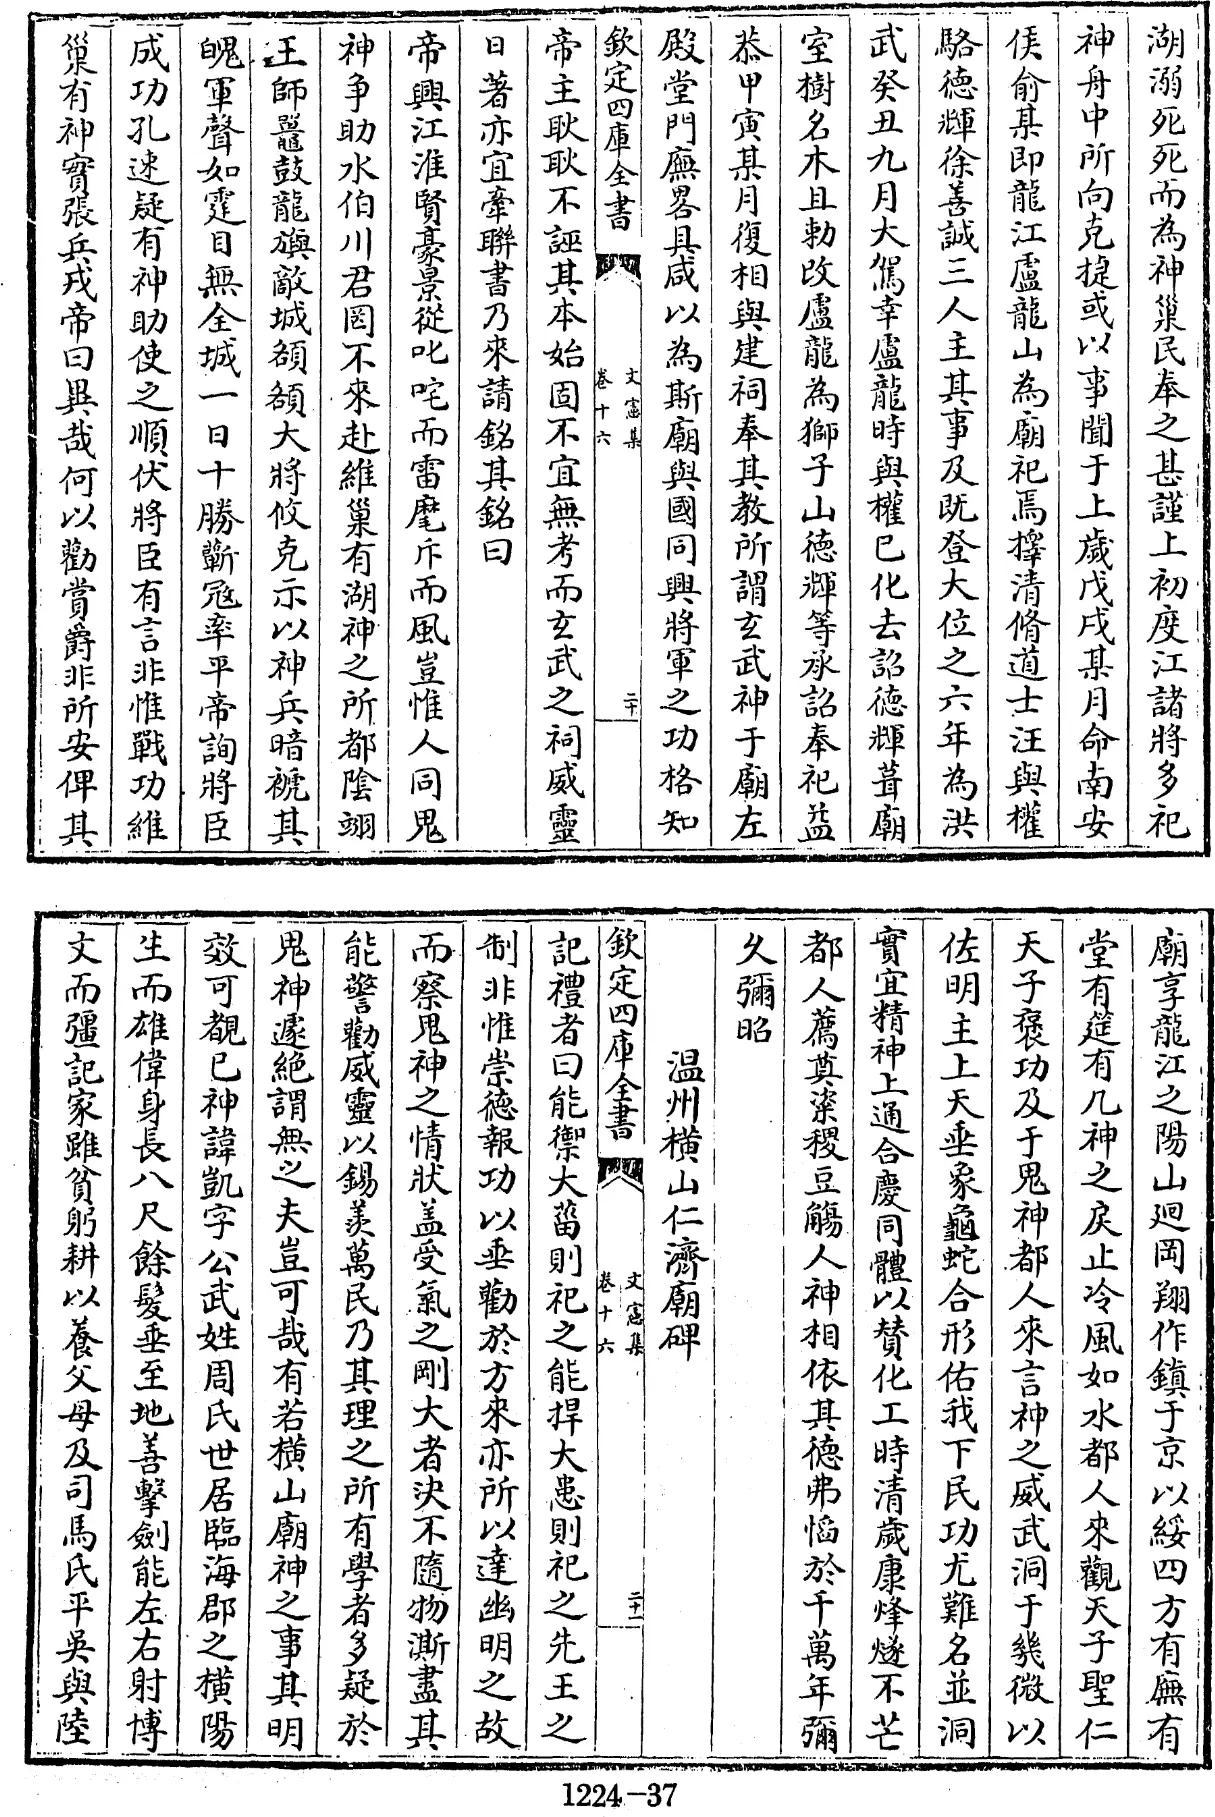 湖溺死死而為神巢民奉之甚謹上初度江諸將多祀
神舟中所向克捷或以事聞于上歲戊戌某月命南安
侯俞某即龍江盧龍山為廟祀焉擇清脩道士汪與權
駱德輝徐善誠三人主其事及既登大位之六年為洪
武癸丑九月大駕幸盧龍時與權已化去詔德輝葺廟
室樹名木且勅改盧龍為獅子山德輝等承詔奉祀益
恭甲寅某月復相與建祠奉其教所謂玄武神于廟左
殿堂門廡畧具咸以為斯廟與國同興將軍之功格知
欽定四庫全書
文憲集
卷十六
二十
帝主耿耿不誣其本始固不宜無考而玄武之祠威靈
日著亦宜牽聯書乃來請銘其銘曰
帝興江淮賢豪景從叱咤而雷麾斥而風豈惟人同鬼
神争助水伯川君罔不來赴維巢有湖神之所都陰翊
王師鼉鼓龍旟敵城頟頟大將攸克示以神兵暗褫其
魄軍聲如霆目無全城一日十勝斬冦率平帝詢將臣
成功孔速疑有神助使之順伏將臣有言非惟戰功維
巢有神實張兵戎帝曰異哉何以勸賞爵非所安俾其
廟享龍江之陽山廻岡翔作鎮于京以綏四方有廡有
堂有筵有几神之戾止冷風如水都人來觀天子聖仁
天子褒功及于鬼神都人來言神之威武洞于幾微以
佐明主上天垂象龜蛇合形佑我下民功尤難名並洞
實宜精神上通合慶同體以賛化工時清歲康烽燧不芒
都人薦奠粢稷豆觴人神相依其德弗慆於千萬年彌
乆彌昭
温州橫山仁濟廟碑
欽定四庫全書
文憲集
卷十六
二十一
記禮者曰能禦大菑則祀之能捍大患則祀之先王之
制非惟崇德報功以垂勸於方來亦所以達幽明之故
而察鬼神之情狀盖受氣之剛大者決不隨物澌盡其
能警勸威靈以錫羡萬民乃其理之所有學者多疑於
鬼神遽絶謂無之夫豈可哉有若橫山廟神之事其明
效可覩已神諱凱字公武姓周氏世居臨海郡之橫陽
生而雄偉身長八尺餘髮垂至地善擊劍能左右射博
文而彊記家雖貧躬耕以養父母及司馬氏平吳與陸
1224-37